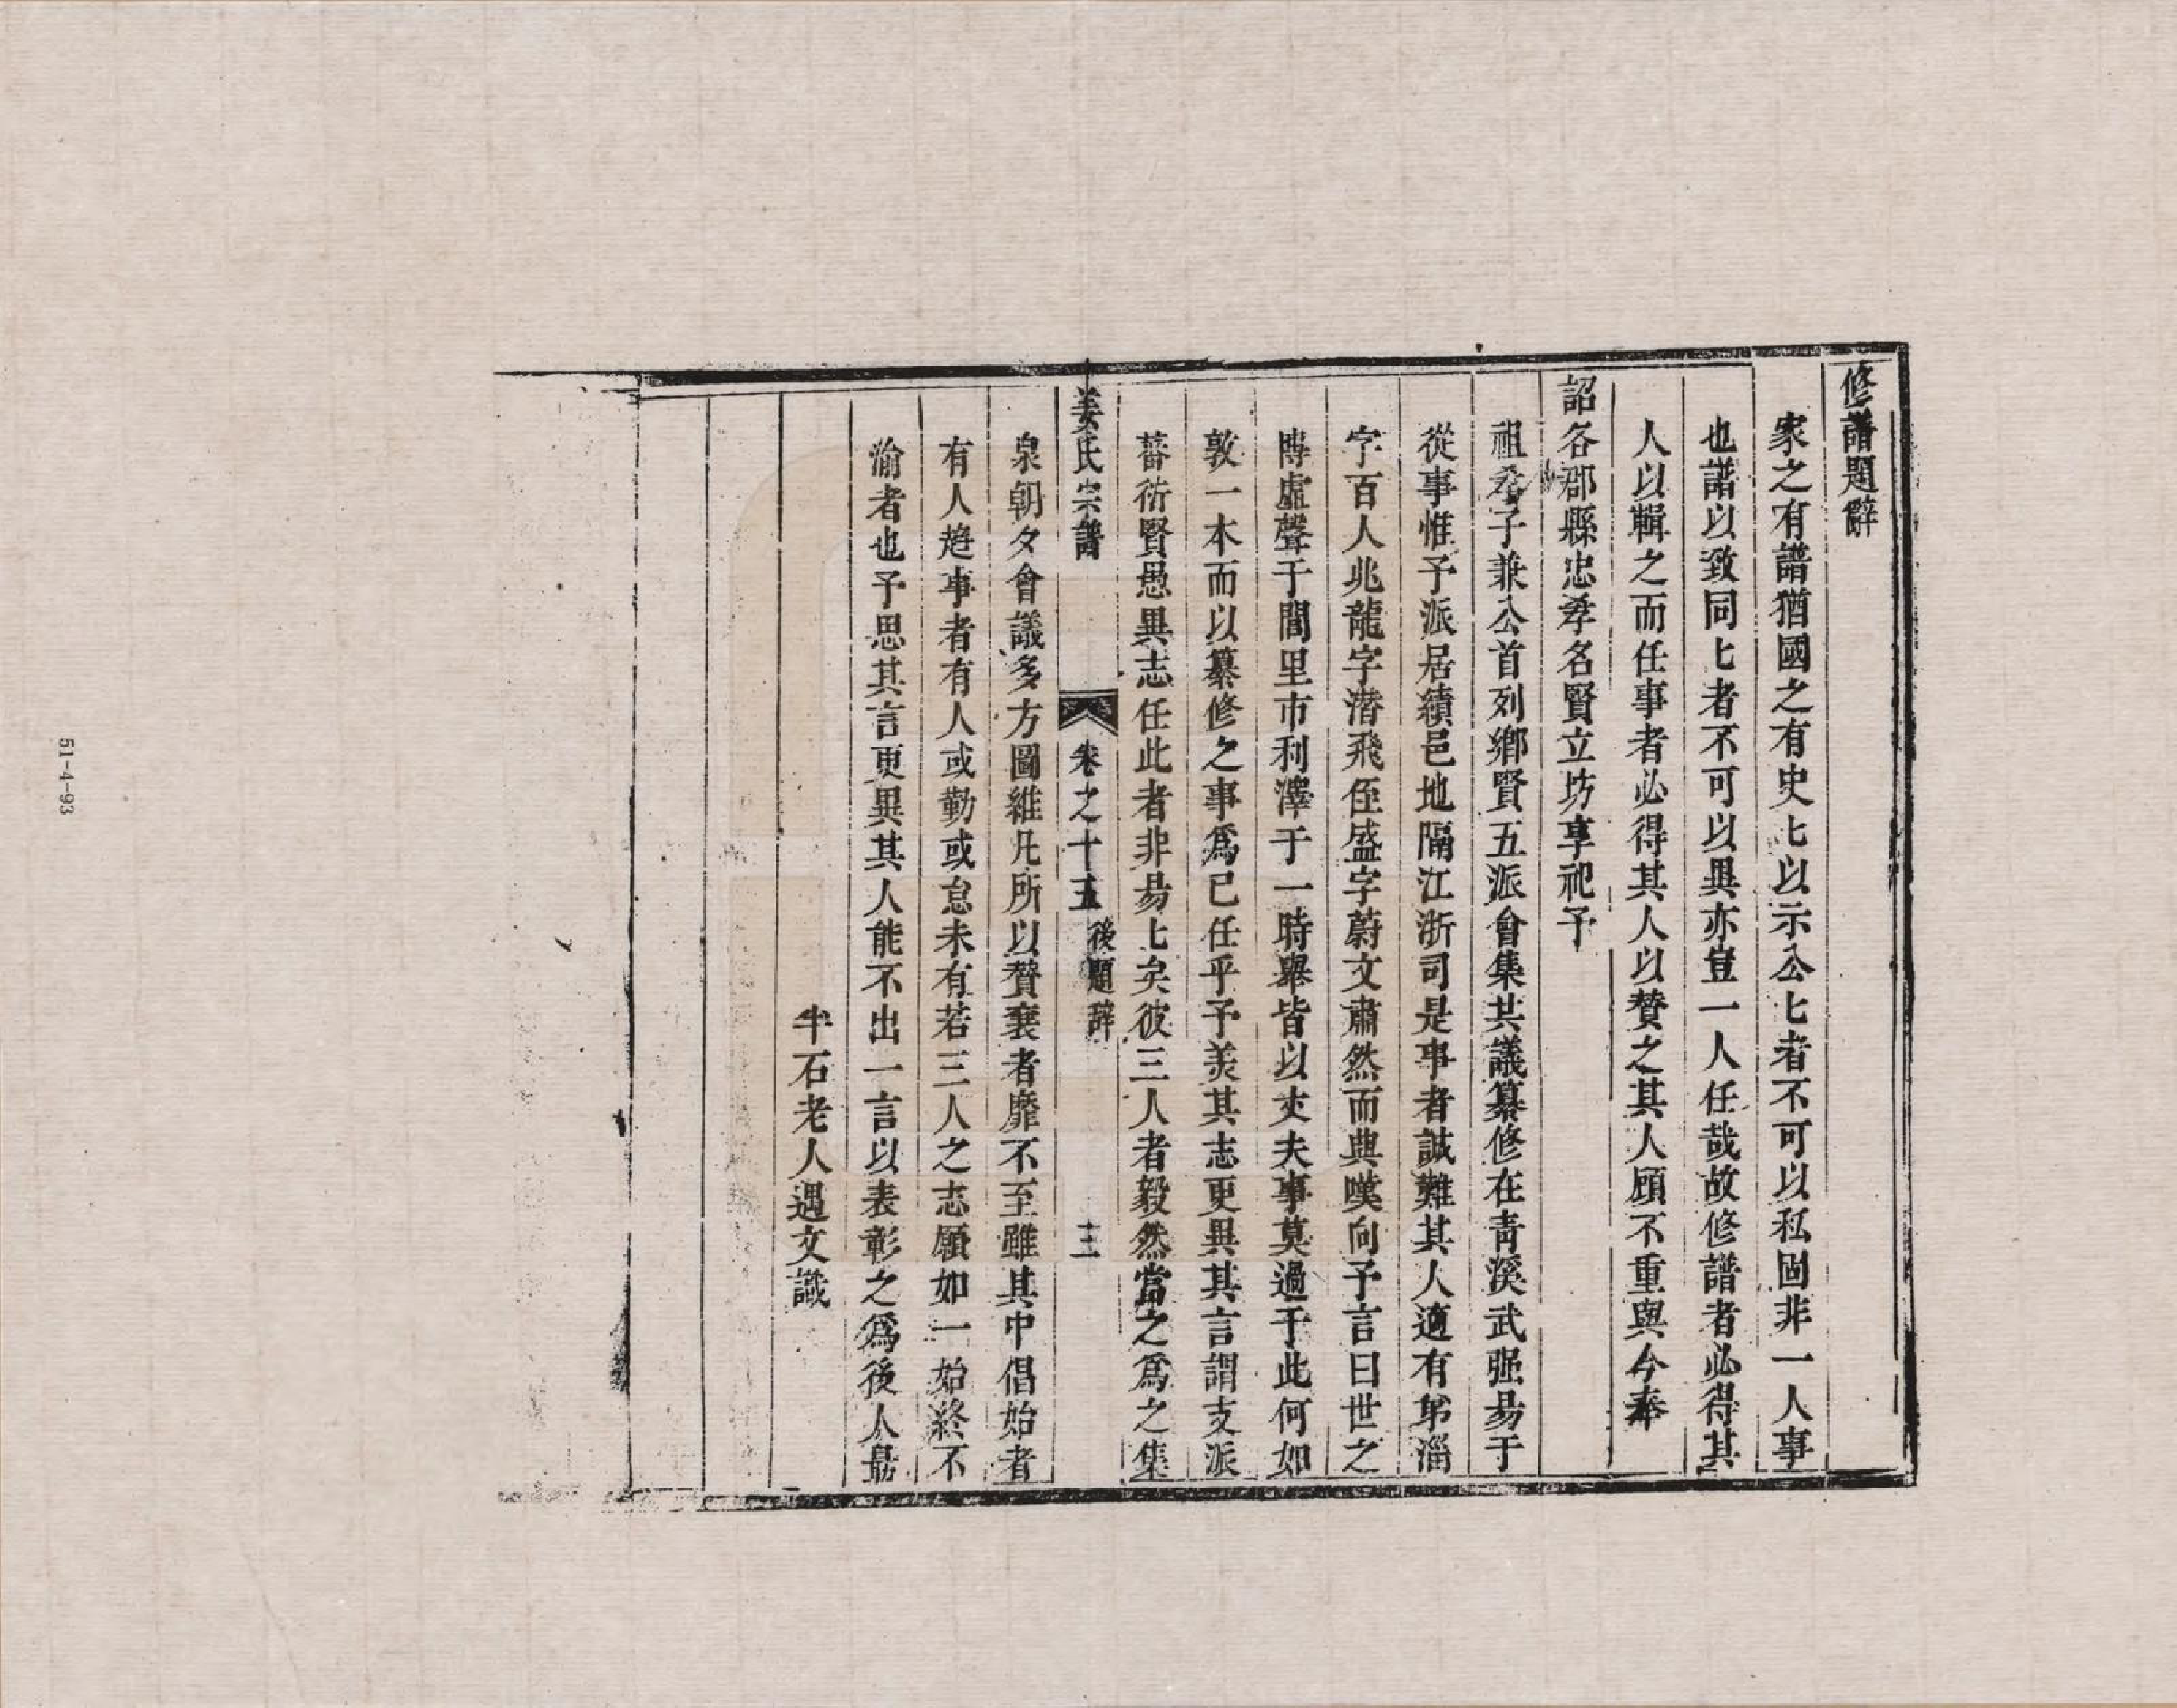 修譜題辭
家之有譜猶國之有史匕以示公匕者不可以私固非一人事
也譜以致同匕者不可以異亦豈一人任哉故修譜者必得其
人以輯之而任事者必得其人以贊之其人顧不重與今奉
詔各郡縣忠孝名賢立坊享祀予
祖孝子兼公首列鄉賢五派會集共議纂修在青溪武强易于
從事惟予派居績邑地隔江浙司是事者誠難其人適有弟淄
字百人兆龍字潛飛侄盛字蔚文肅然而典嘆向予言曰世之
博虛聲于閭里市利澤于一時舉皆以丈夫事莫過于此何如
敦一本而以纂修之事爲已任乎予羙其志更異其言謂支派
蕃衍賢愚異志任此者非易匕矣彼三人者毅然當之爲之集
姜氏宗譜 卷之十五 後題辭 三
泉朝夕會議多方圖維凡所以贊襄者靡不至雖其中倡始者
有人趋事者有人或勤或怠未有若三人之志願如一始終不
渝者也予思其言更異其人能不出一言以表彰之爲後人最
半石老人遇文識
51-4-93